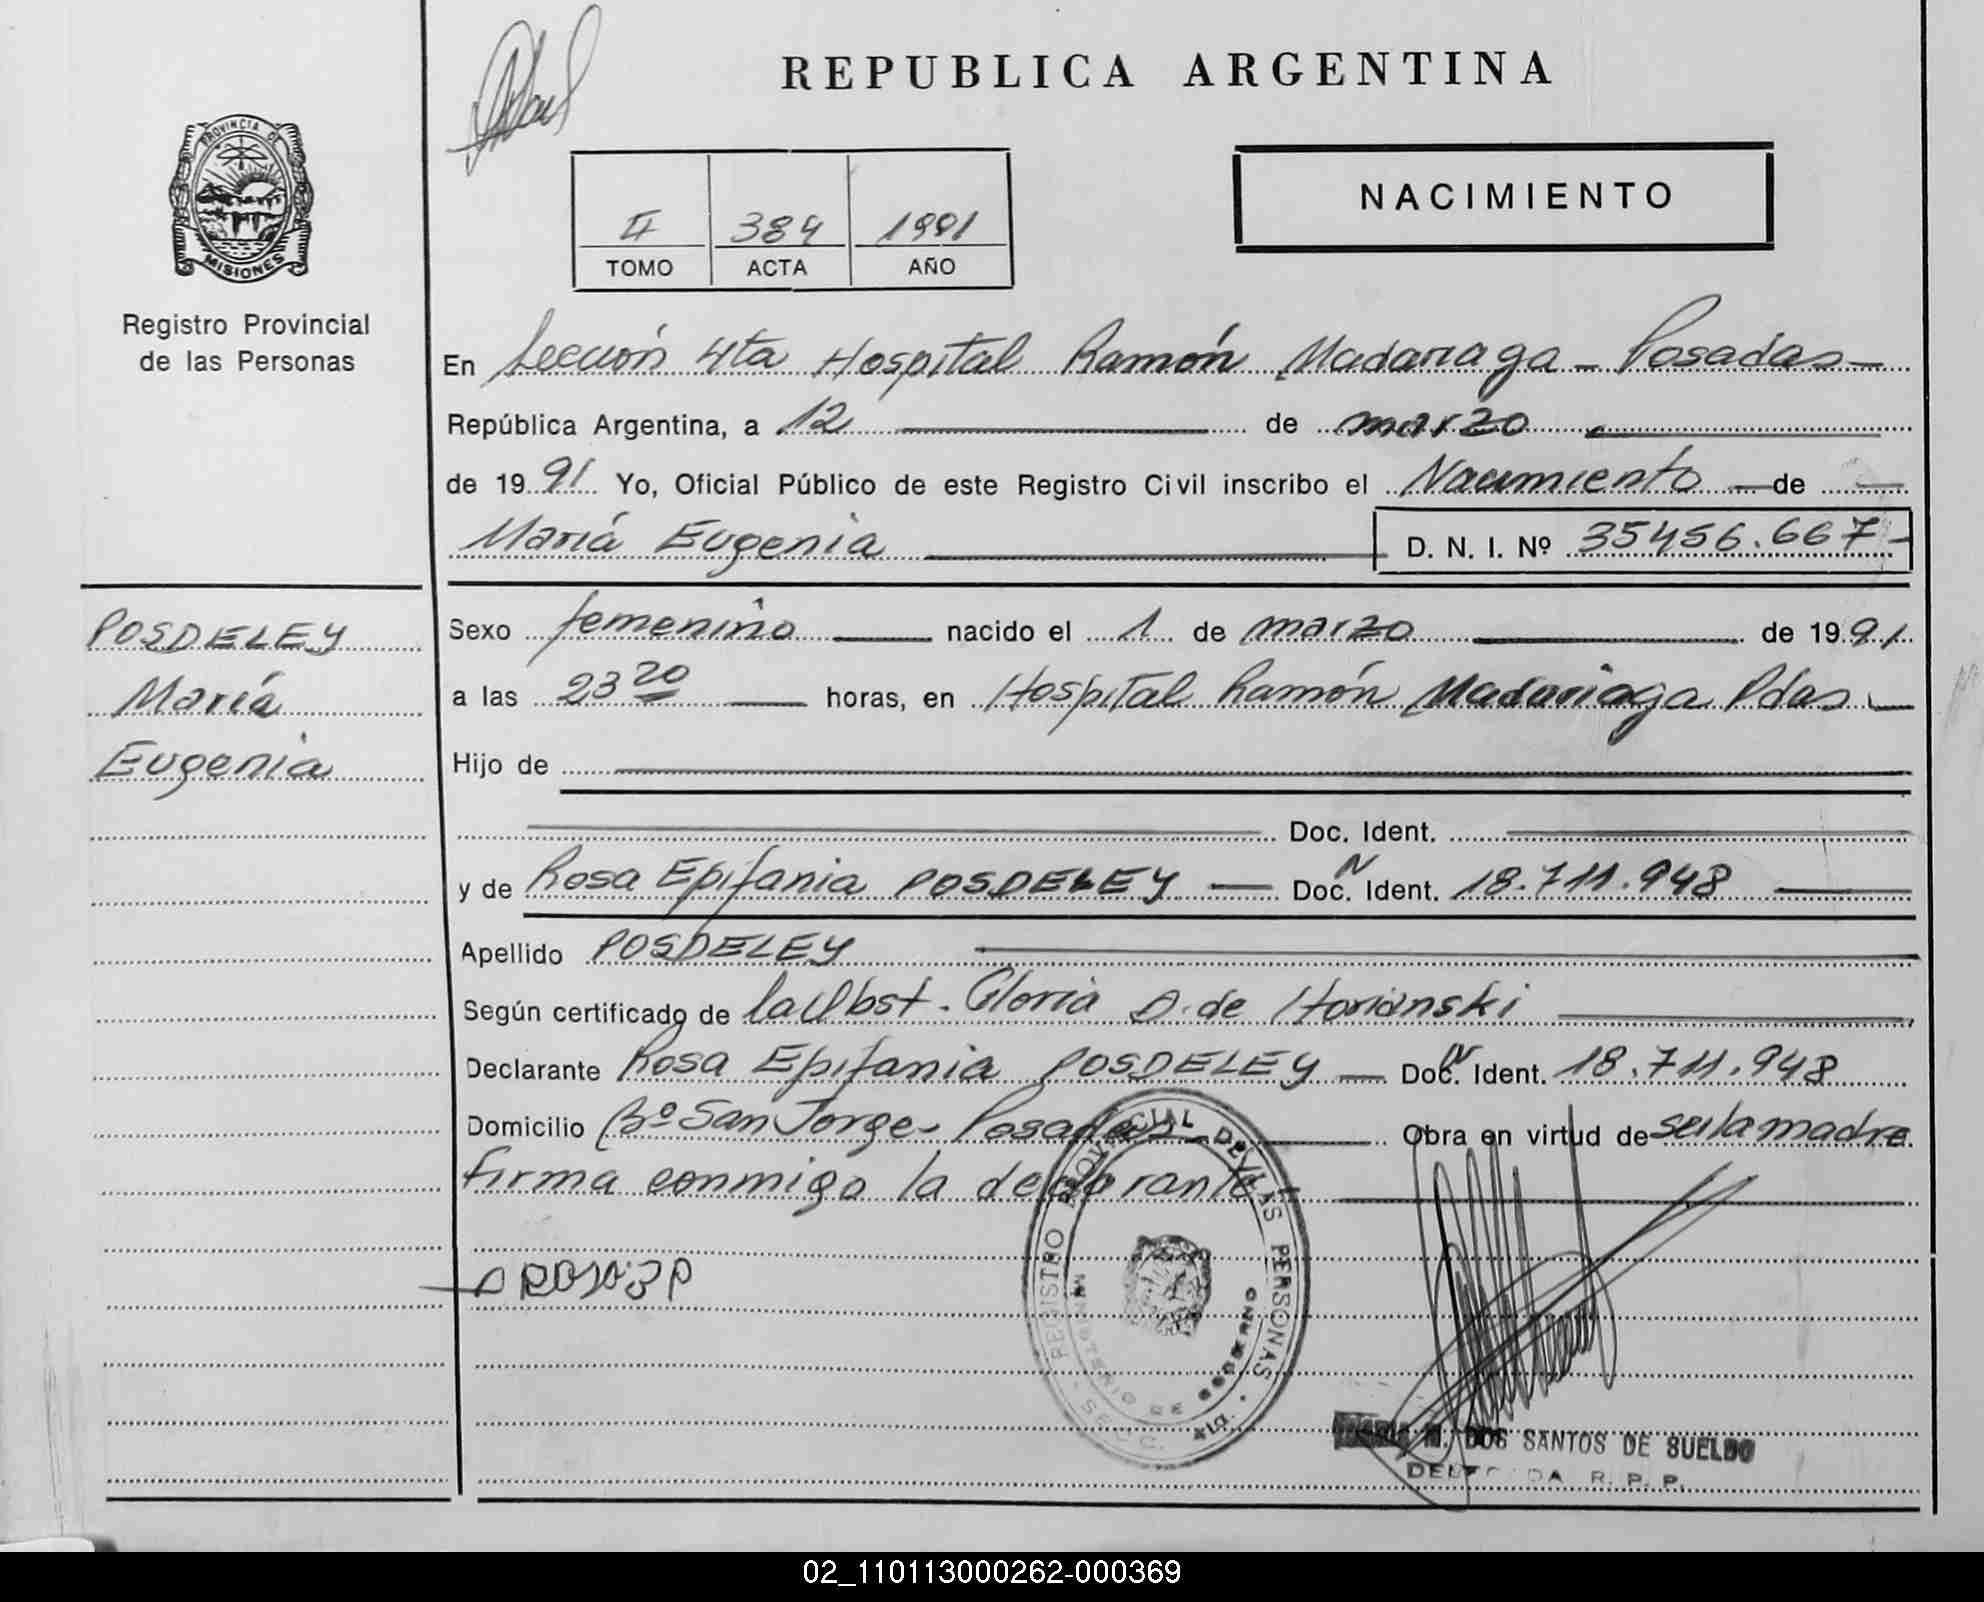 REPUBLICA ARGENTINA
NACIMIENTO
II 384 1991
TOMO ACTA AÑO
PROVINCIA DE
MISIONES
Registro Provincial
de las Personas
En Sección 4ta Hospital Ramón Madariaga - Posadas -
República Argentina, a 12 de marzo
de 1991 Yo, Oficial Público de este Registro Civil inscribo el Nacimiento de
María Eugenia D. N. I. Nº 35456.667
POSDELEY
María
Eugenia
Sexo femenino nacido el 1 de marzo de 1991
a las 23 20 horas, en Hospital Ramón Madariaga Pdas
Hijo de
Doc. Ident.
y de Rosa Epifania POSDELEY Doc. N Ident. 18.711.948
Apellido POSDELEY
Según certificado de la Obst. Gloria D. de Horianski
Declarante Rosa Epifania POSDELEY Doc. N Ident. 18.711.948
Domicilio Bº San Jorge - Posadas Obra en virtud de ser la madre
firma conmigo la declarante
REGISTRO PROVINCIAL DE LAS PERSONAS
MINISTERIO DE GOBIERNO
M. DOS SANTOS DE SUELDO
R. P. P.
02_110113000262-000369